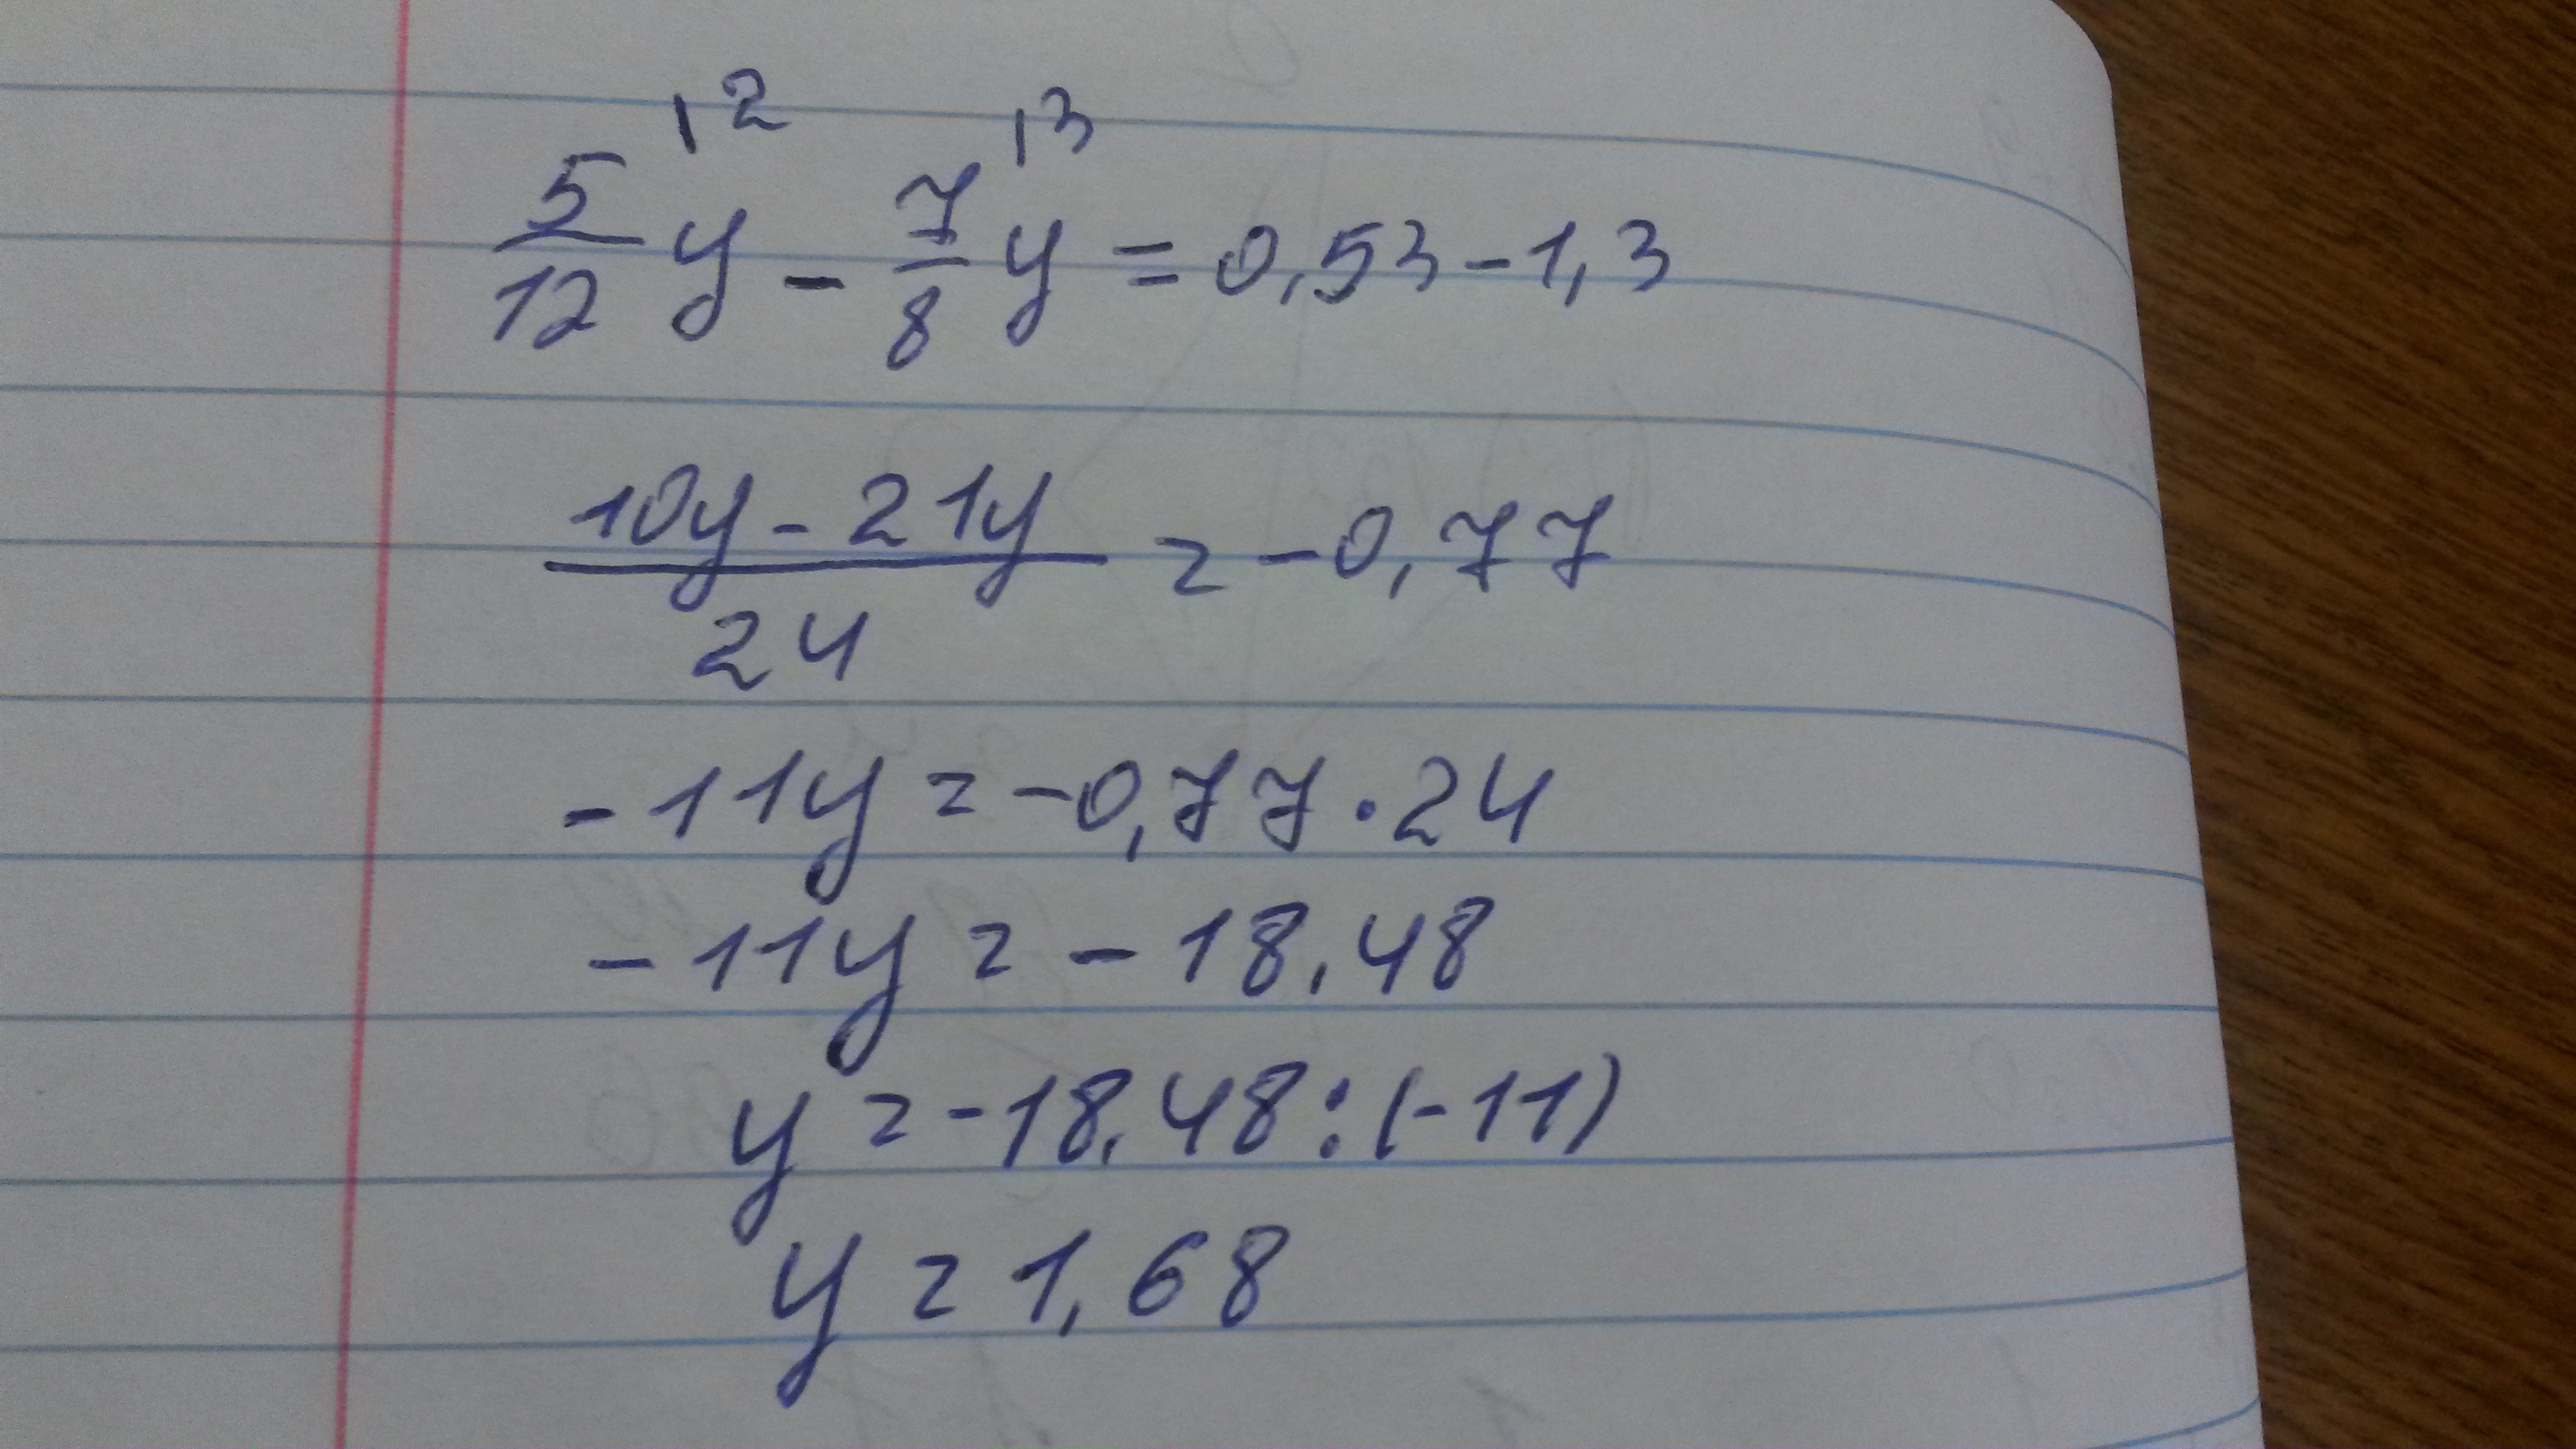 5/12 y |2 - 7/8 y |3 = 0,53 - 1,3
(10y - 21y)/24 = -0,77
-11y = -0,77 · 24
-11y = -18,48
y = -18,48 : (-11)
y = 1,68